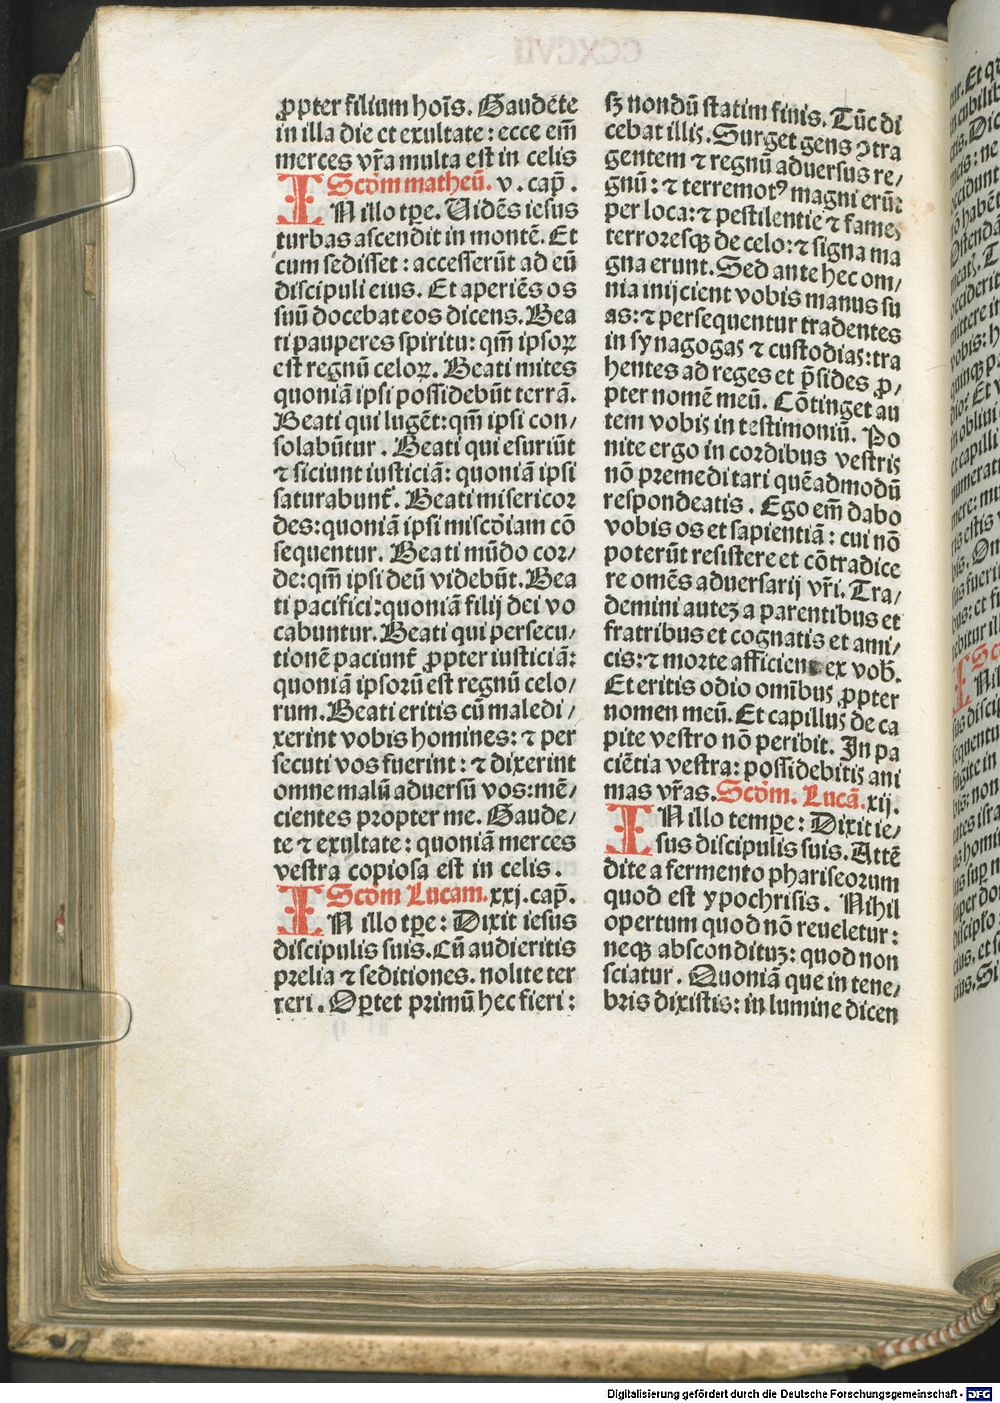 ꝓpter filium hoīs. Gaudete
in illa die et exultate: ecce em̄
merces vr̄a multa est in celis
Scd̓m matheū. v. cap̄.
IN illo tꝑe. Uidēs iesus
turbas ascendit in montē. Et
cum sedisset: accesserūt ad eū
discipuli eius. Et aperiēs os
suū docebat eos dicens. Bea
ti pauperes spiritu: qm̄ ipsoꝝ
est regnū celoꝝ. Beati mites
quoniā ipsi possidebūt terrā.
Beati qui lugēt: qm̄ ipsi con
solabūtur. Beati qui esuriūt
⁊ siciunt iusticiā: quoniā ipsi
saturabunt̄. Beati misericor
des: quoniā ipsi misc̓diam cō
sequentur. Beati mūdo cor/
de: qm̄ ipsi deū videbūt. Bea
ti pacifici: quoniā filij dei vo
cabuntur. Beati qui persecu/
tionē paciunt̄ ꝓpter iusticiā:
quoniā ipsorū est regnū celo/
rum. Beati eritis cū maledi/
xerint vobis homines: ⁊ per
secuti vos fuerint: ⁊ dixerint
omne malū adversū vos: mē/
cientes propter me. Gaude/
te ⁊ exultate: quoniā merces
vestra copiosa est in celis.
Scd̓m Lucam. xxj. cap̄.
IN illo tꝑe: Dixit iesus
discipulis suis. Cū audieritis
prelia ⁊ seditiones. nolite ter
reri. Oꝑtet primū hec fieri:
sꝫ nondū statim finis. Tūc di
cebat illis. Surget gens ↄtra
gentem ⁊ regnū adversus re/
gnū: ⁊ terremotꝰ magni erūt
per loca: ⁊ pestilentie ⁊ fames
terroresqꝫ de celo: ⁊ signa ma
gna erunt. Sed ante hec om/
nia inijcient vobis manus su
as: ⁊ persequentur tradentes
in synagogas ⁊ custodias: tra
hentes ad reges et p̄sides ꝓ/
pter nomē meū. Cōtinget au
tem vobis in testimoniū. Po
nite ergo in cordibus vestris
nō premeditari quēadmodū
respondeatis. Ego em̄ dabo
vobis os et sapientiā: cui nō
poterūt resistere et cōtradice
re omēs adversarij vr̄i. Tra/
demini auteꝫ a parentibus et
fratribus et cognatis et ami/
cis: ⁊ morte afficient ex vob̄.
Et eritis odio omībus ꝓpter
nomen meū. Et capillus de ca
pite vestro nō peribit. In pa
ciētia vestra: possidebitis ani
mas vr̄as. Scd̓m. Lucā. xij.
IN illo tempꝑe: Dixit ie/
sus discipulis suis. Attē
dite a fermento phariseorum
quod est ypochrisis. Nihil
opertum quod nō reveletur:
neqꝫ abscondituꝫ: quod non
sciatur. Quoniā que in tene/
bris dixistis: in lumine dicen
Digitalisierung gefördert durch die Deutsche Forschungsgemeinschaft - DFG